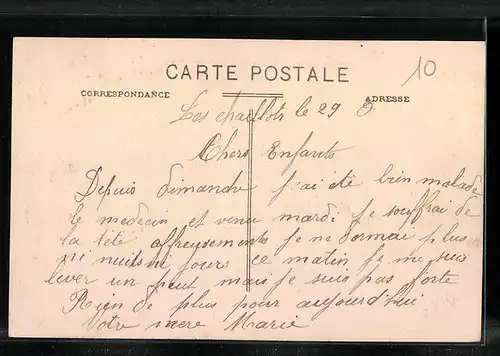 10
CARTE POSTALE
CORRESPONDANCE
ADRESSE
Les chaillots le 29
Chers Enfants
Depuis dimanche j'ai été bien malade
le medecin et venu mardi je souffrai de
la tété affreusements je ne dormai plus
ni nuits ni jours ce matin je me suis
lever un peut mais je suis pas forte
Rien de plus pour aujourd'hui
Votre mere Marie